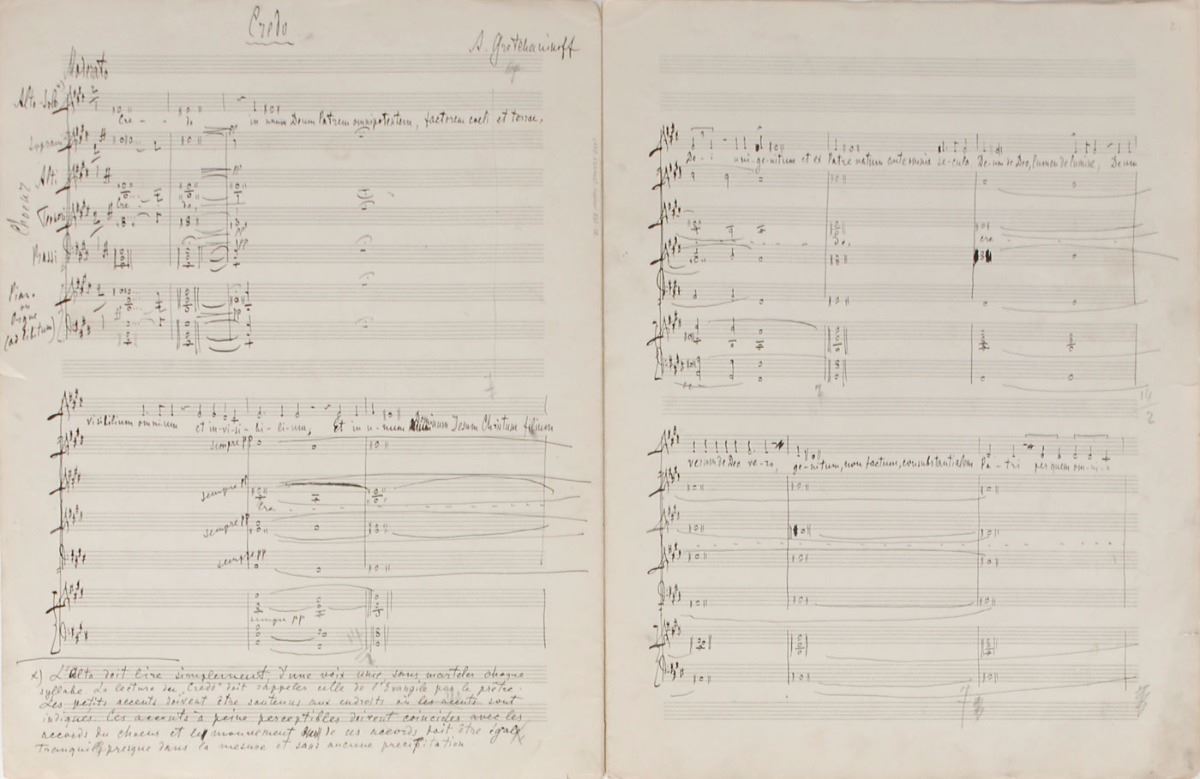 Credo
A. Gretchaninoff
Moderato
Alto-Solo
Cre - - do in unum Deum Patrem omnipotentem, factorem coeli et terrae,
Soprani
pp
Alti
pp
Cre - do,
Choeur
Tenori
pp
Bassi
pp
Piano
ou
Orgue
(ad libitum)
pp
visibilium omnium et in-vi-si-bi-li-um, Et in u-num Dominum Jesum Christum filium
sempre pp
sempre pp
Cre
sempre pp
sempre pp
sempre pp
x) L'Alto doit lire simplement, d'une voix unie, sans marteler chaque
syllabe. La lecture du "Credo" doit rappeler celle de l'Evangile par le prêtre.
Les petits accents doivent être soutenus aux endroits où les accents sont
indiqués. Ces accents à peine perceptibles doivent coincider avec les
accords du choeur et le mouvement de ces accords doit être égal,
tranquille, presque dans la mesure et sans aucune precipitation
2
De - i uni-ge-nitum et ex Patre natum ante omnia se-cula Deum de Deo, lumen de lumine, Deum
do,
cre
verum de Deo ve-ro, ge-nitum, non factum, consubstantialem Pa - tri per quem om-ni-a